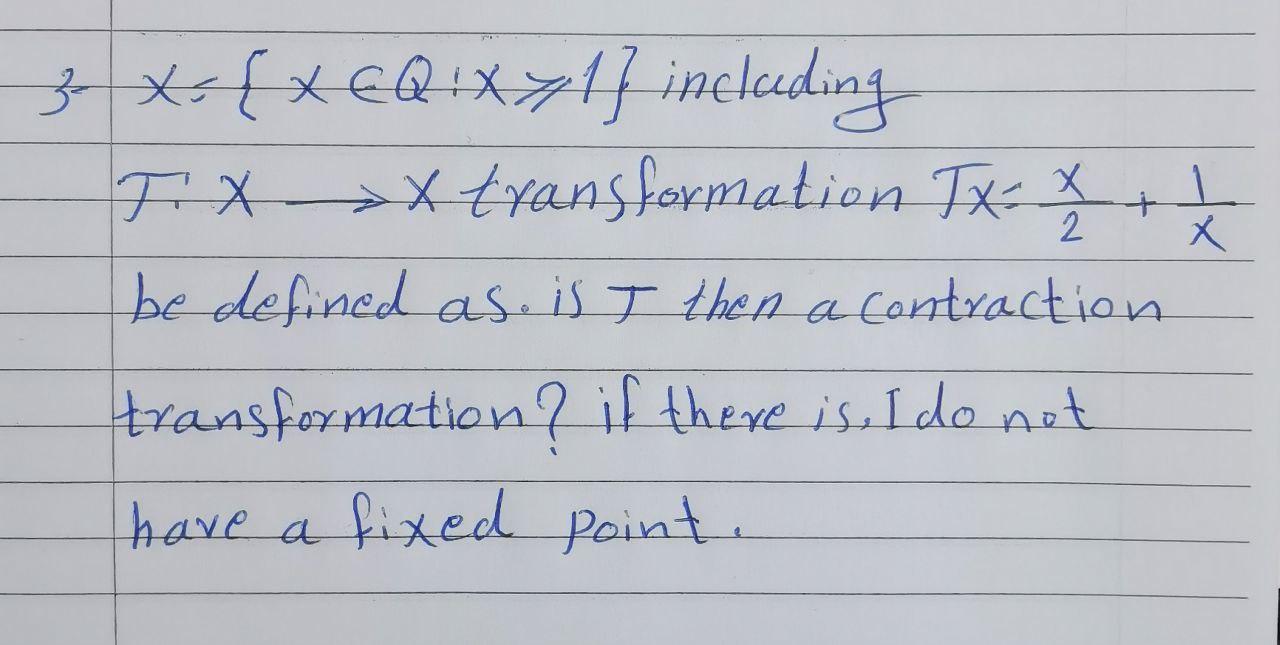 3- X = { x ∈ Q : x ⩾ 1 } including
T: X → X transformation Tx = x/2 + 1/x
be defined as. is T then a contraction
transformation? if there is, I do not
have a fixed point.